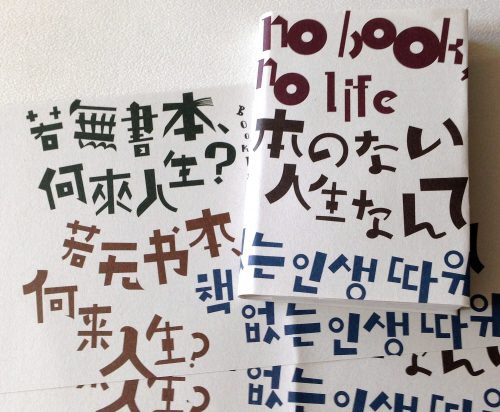 若無書本、
何來人生?
若无书本、
何来人生?
책 없는 인생 따위
없는 인생 따위
人生?
없는 인생 따위
BOOK
no book,
no life
本のない
人生なんて
없는 인생 따위